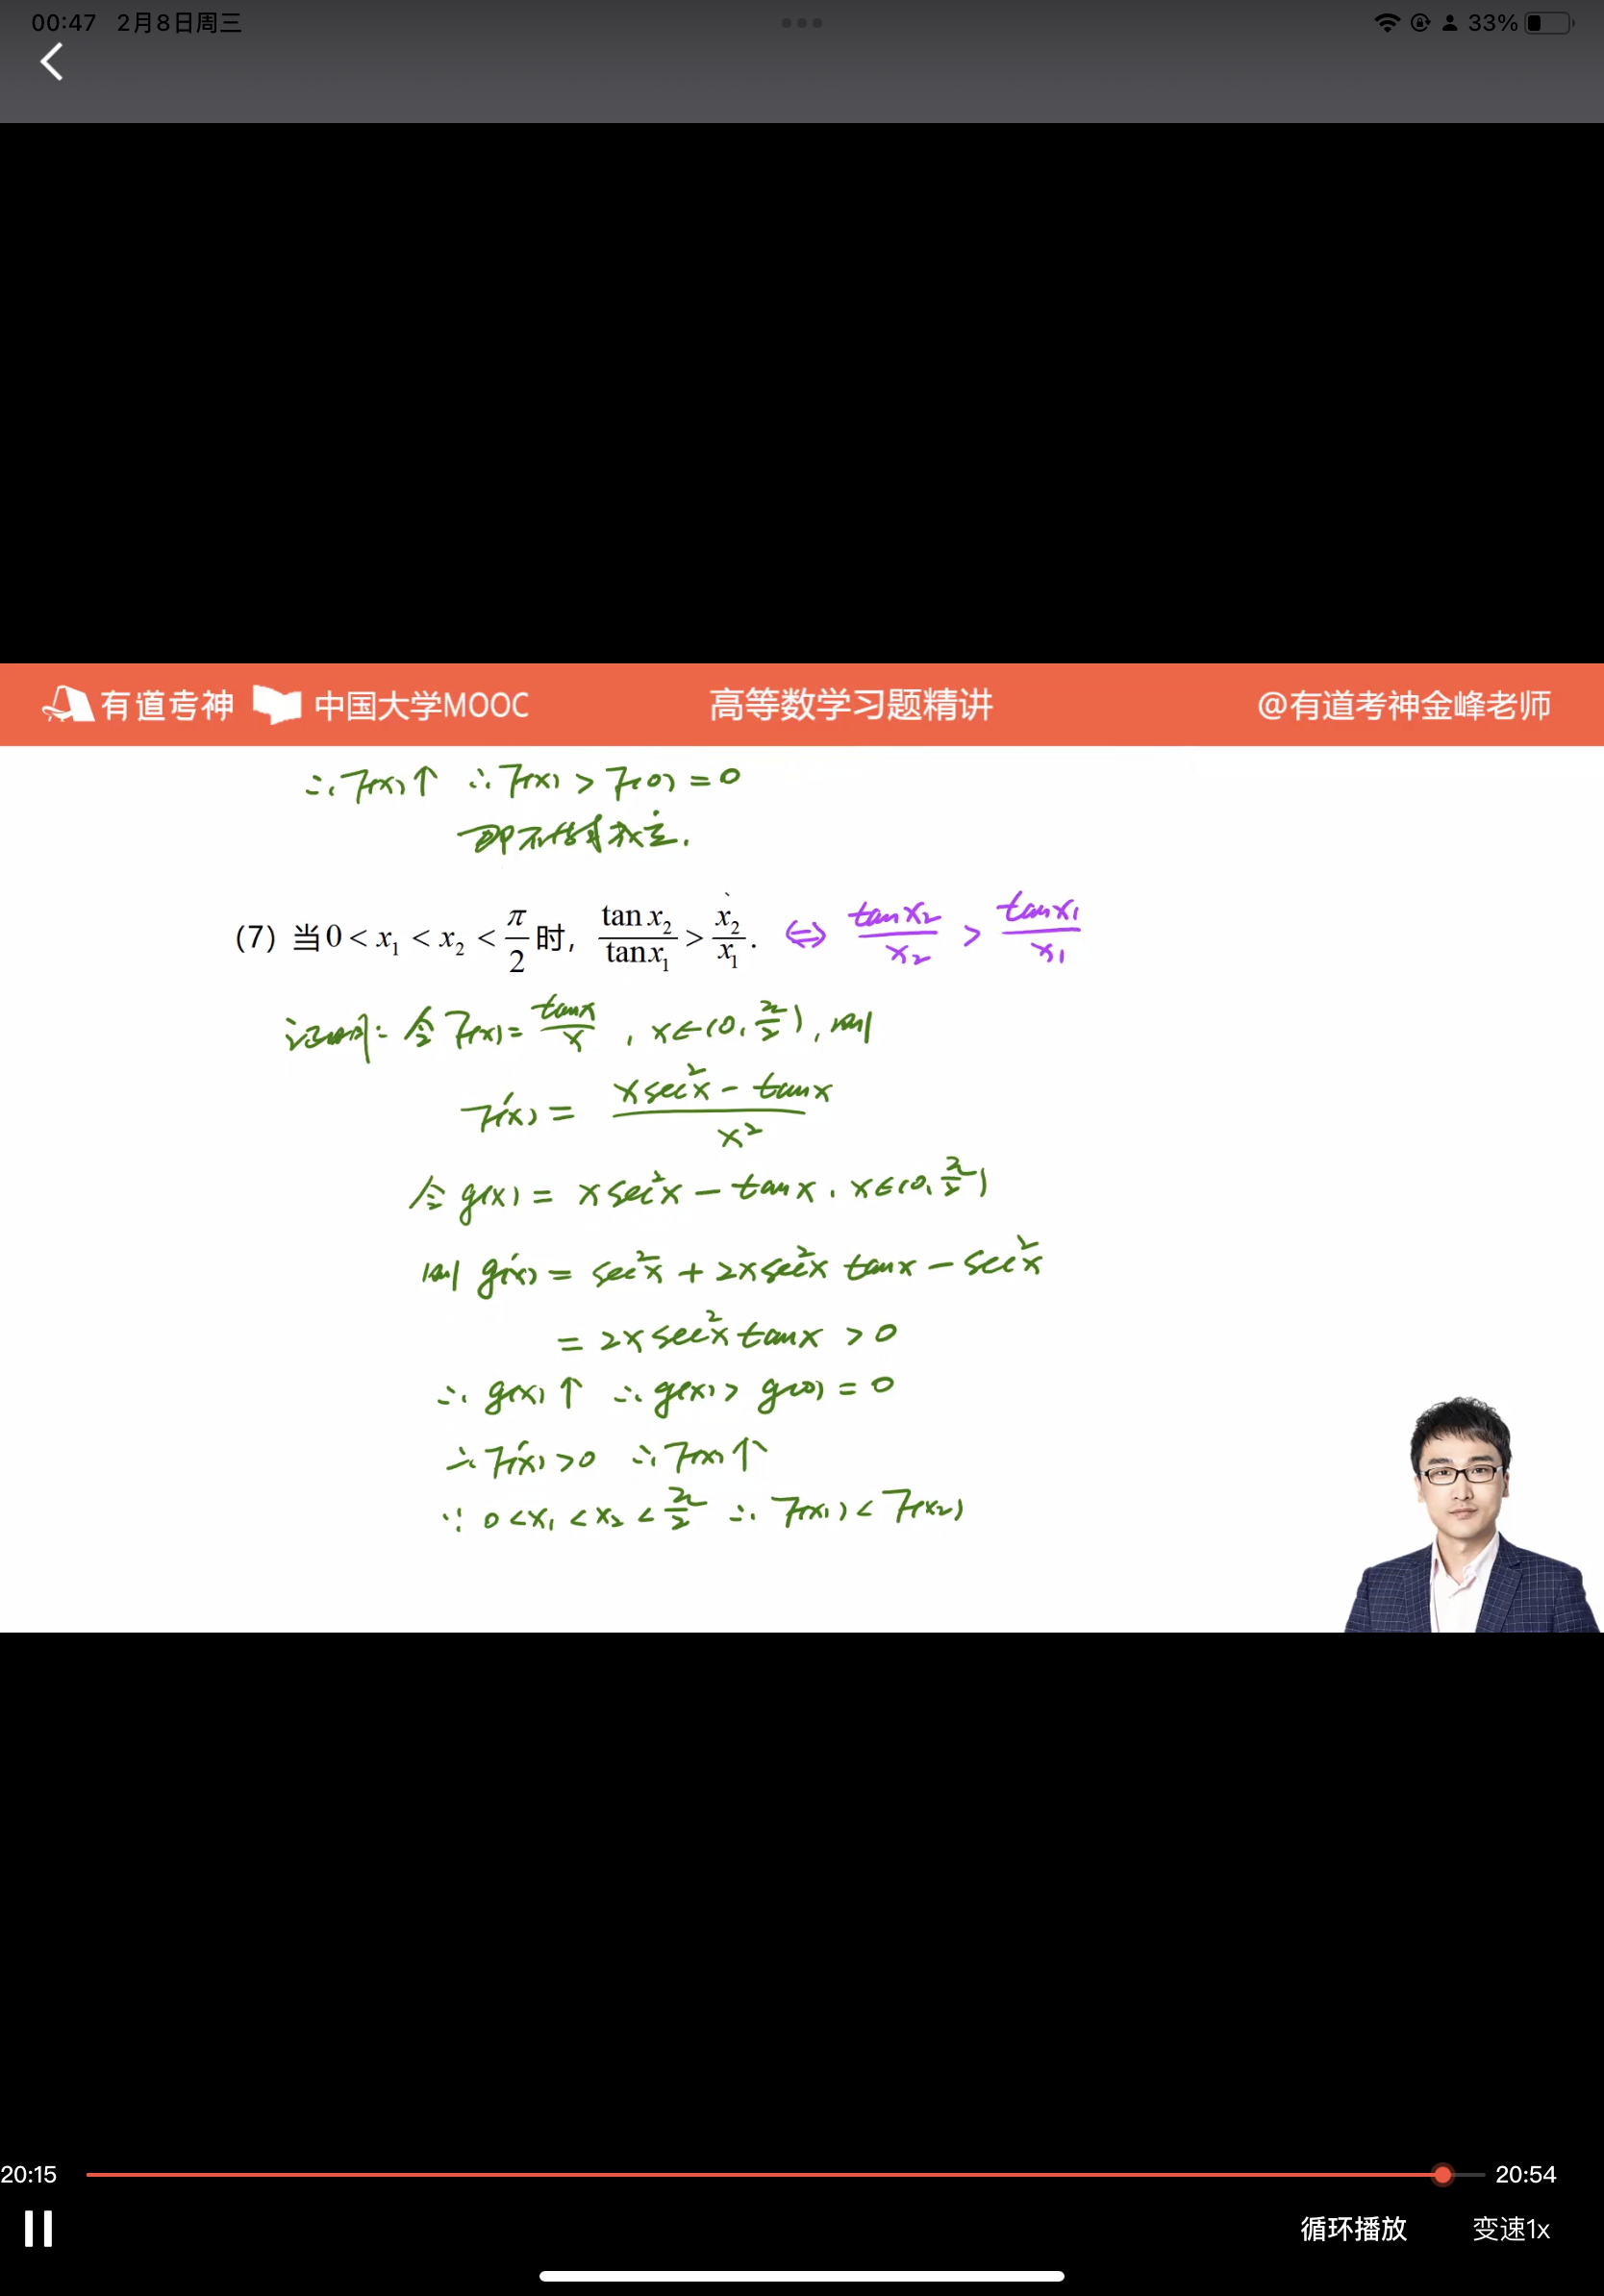 00:47 2月8日周三 33%
有道考神 中国大学MOOC 高等数学习题精讲 @有道考神金峰老师
∴F(x)↑ ∴F(x) > F(0) = 0
即不等式成立.
(7) 当 0 < x₁ < x₂ < π/2 时, tan x₂/tan x₁ > x₂/x₁. ⇔ tanx₂/x₂ > tanx₁/x₁
证明: 令F(x) = tanx/x , x∈(0, π/2), 则
F'(x) = (x sec²x - tanx)/x²
令 g(x) = x sec²x - tanx, x∈(0, π/2)
则 g'(x) = sec²x + 2x sec²x tanx - sec²x
= 2x sec²x tanx > 0
∴ g(x)↑ ∴ g(x) > g(0) = 0
∴ F'(x) > 0 ∴ F(x)↑
∵ 0 < x₁ < x₂ < π/2 ∴ F(x₁) < F(x₂)
20:15 20:54
循环播放 变速1x